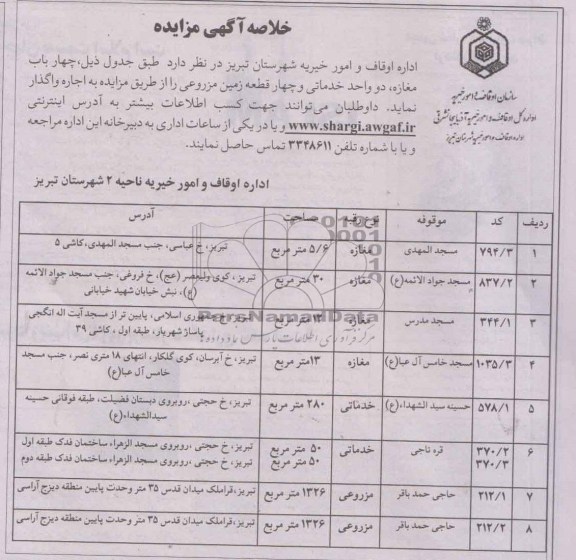 خلاصه آگهی مزایده
سازمان اوقاف و امور خیریه
اداره کل اوقاف و امور خیریه آذربایجانشرقی
اداره اوقاف و امور خیریه شهرستان تبریز
اداره اوقاف و امور خیریه شهرستان تبریز در نظر دارد طبق جدول ذیل،چهار باب
مغازه، دو واحد خدماتی و چهار قطعه زمین مزروعی را از طریق مزایده به اجاره واگذار
نماید. داوطلبان می‌توانند جهت کسب اطلاعات بیشتر به آدرس اینترنتی
www.shargi.awgaf.ir و یا در یکی از ساعات اداری به دبیرخانه این اداره مراجعه
و یا با شماره تلفن ۳۳۴۸۶۱۱ تماس حاصل نمایند.
اداره اوقاف و امور خیریه ناحیه ۲ شهرستان تبریز
ردیف کد موقوفه نوع رقبه مساحت آدرس
۱ ۷۹۴/۳ مسجد المهدی مغازه ۵/۶ متر مربع تبریز، خ عباسی، جنب مسجد المهدی،کاشی ۵
۲ ۸۳۷/۲ مسجد جواد الائمه(ع) مغازه ۳۰ متر مربع تبریز، کوی ولیعصر (عج)، خ فروغی، جنب مسجد جواد الائمه
(ع)، نبش خیابان شهید خیابانی
۳ ۳۴۴/۱ مسجد مدرس مغازه ۱۲ متر مربع تبریز، خ جمهوری اسلامی، پایین تر از مسجد آیت اله انگجی
پاساژ شهریار، طبقه اول ، کاشی ۳۹
۴ ۱۰۳۵/۳ مسجد خامس آل عبا(ع) مغازه ۱۳متر مربع تبریز، خ آبرسان، کوی گلکار، انتهای ۱۸ متری نصر، جنب مسجد
خامس آل عبا(ع)
۵ ۵۷۸/۱ حسینه سید الشهداء(ع) خدماتی ۲۸۰ متر مربع تبریز، خ حجتی ،روبروی دبستان فضیلت، طبقه فوقانی حسینه
سیدالشهداء(ع)
۶ ۳۷۰/۲ قره ناجی خدماتی ۵۰ متر مربع تبریز، خ حجتی ،روبروی مسجد الزهراء ساختمان فدک طبقه اول
۳۷۰/۳ ۵۰ متر مربع تبریز، خ حجتی ،روبروی مسجد الزهراء ساختمان فدک طبقه دوم
۷ ۲۱۲/۱ حاجی حمد باقر مزروعی ۱۳۲۶ متر مربع تبریز،قراملک میدان قدس ۳۵ متر وحدت پایین منطقه دیزج آراسی
۸ ۲۱۲/۲ حاجی حمد باقر مزروعی ۱۳۲۶ متر مربع تبریز،قراملک میدان قدس ۳۵ متر وحدت پایین منطقه دیزج آراسی